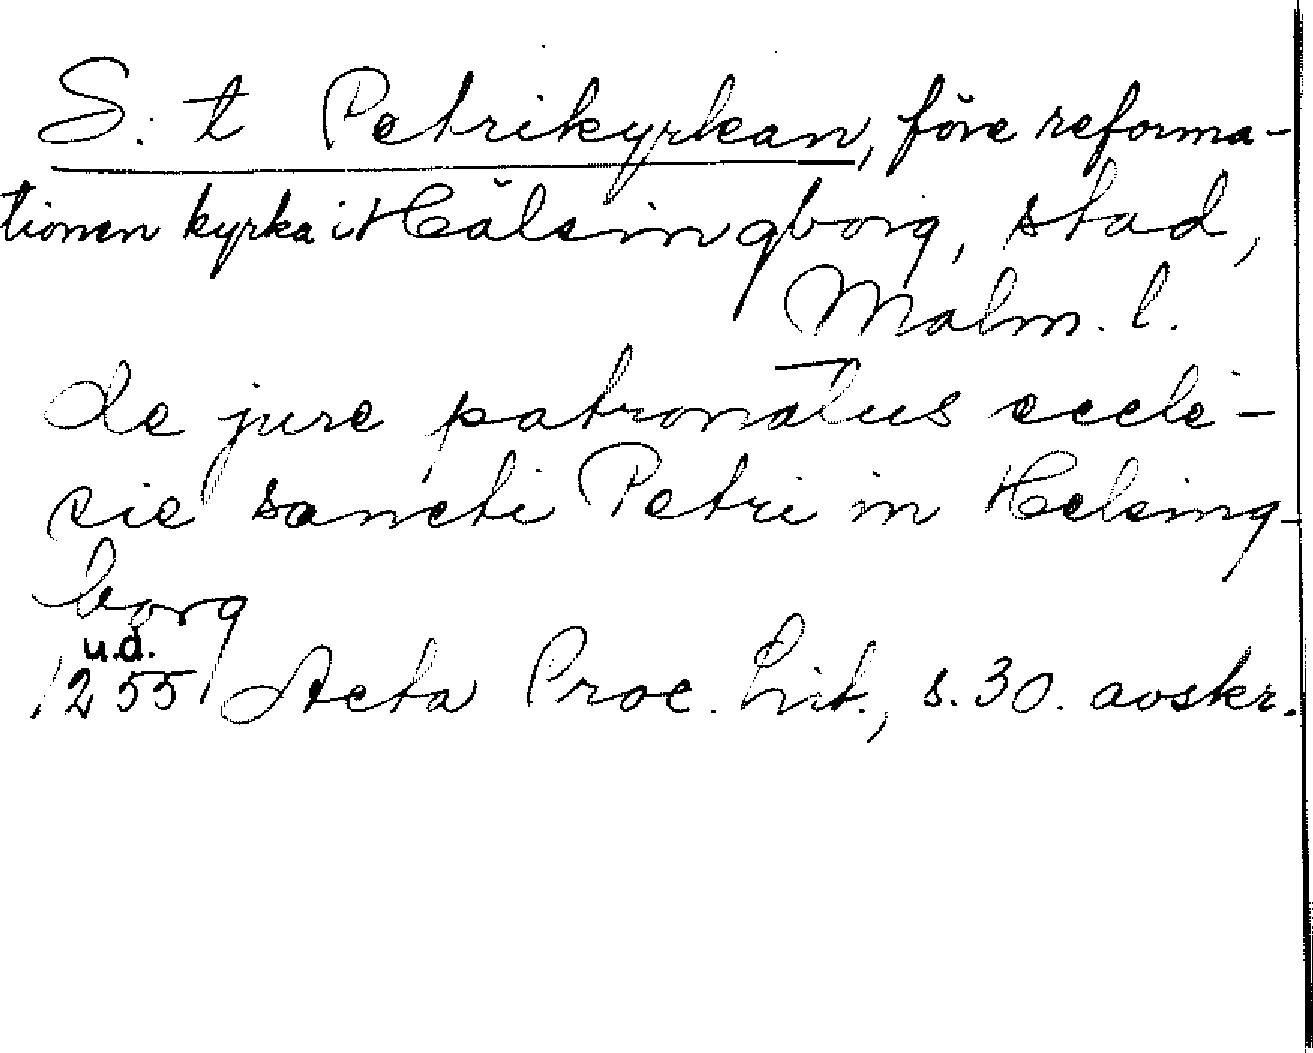 S:t Petrikyrkan, före reforma-
tionen kyrka i Hälsingborg, stad,
Malm. l.
de jure patronatus eccle-
sie sancti Petri in Helsing-
borg
u.d.
1255 Acta Proc. Lit., s. 30. avskr.